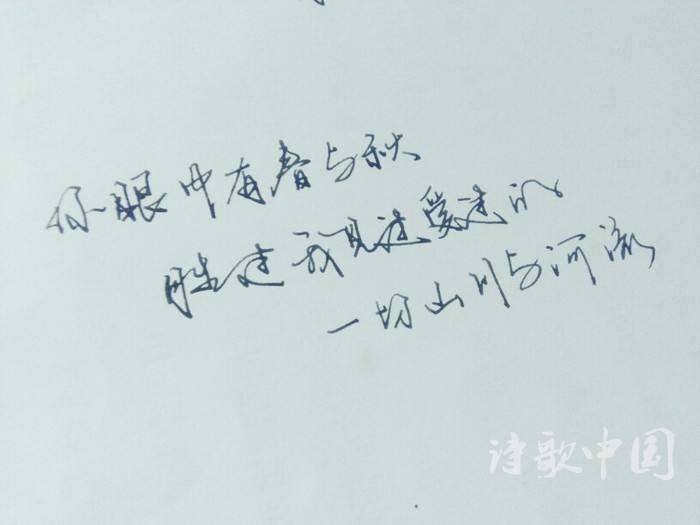 你眼中有春与秋
胜过我见过爱过的
一切山川与河流
诗歌中国